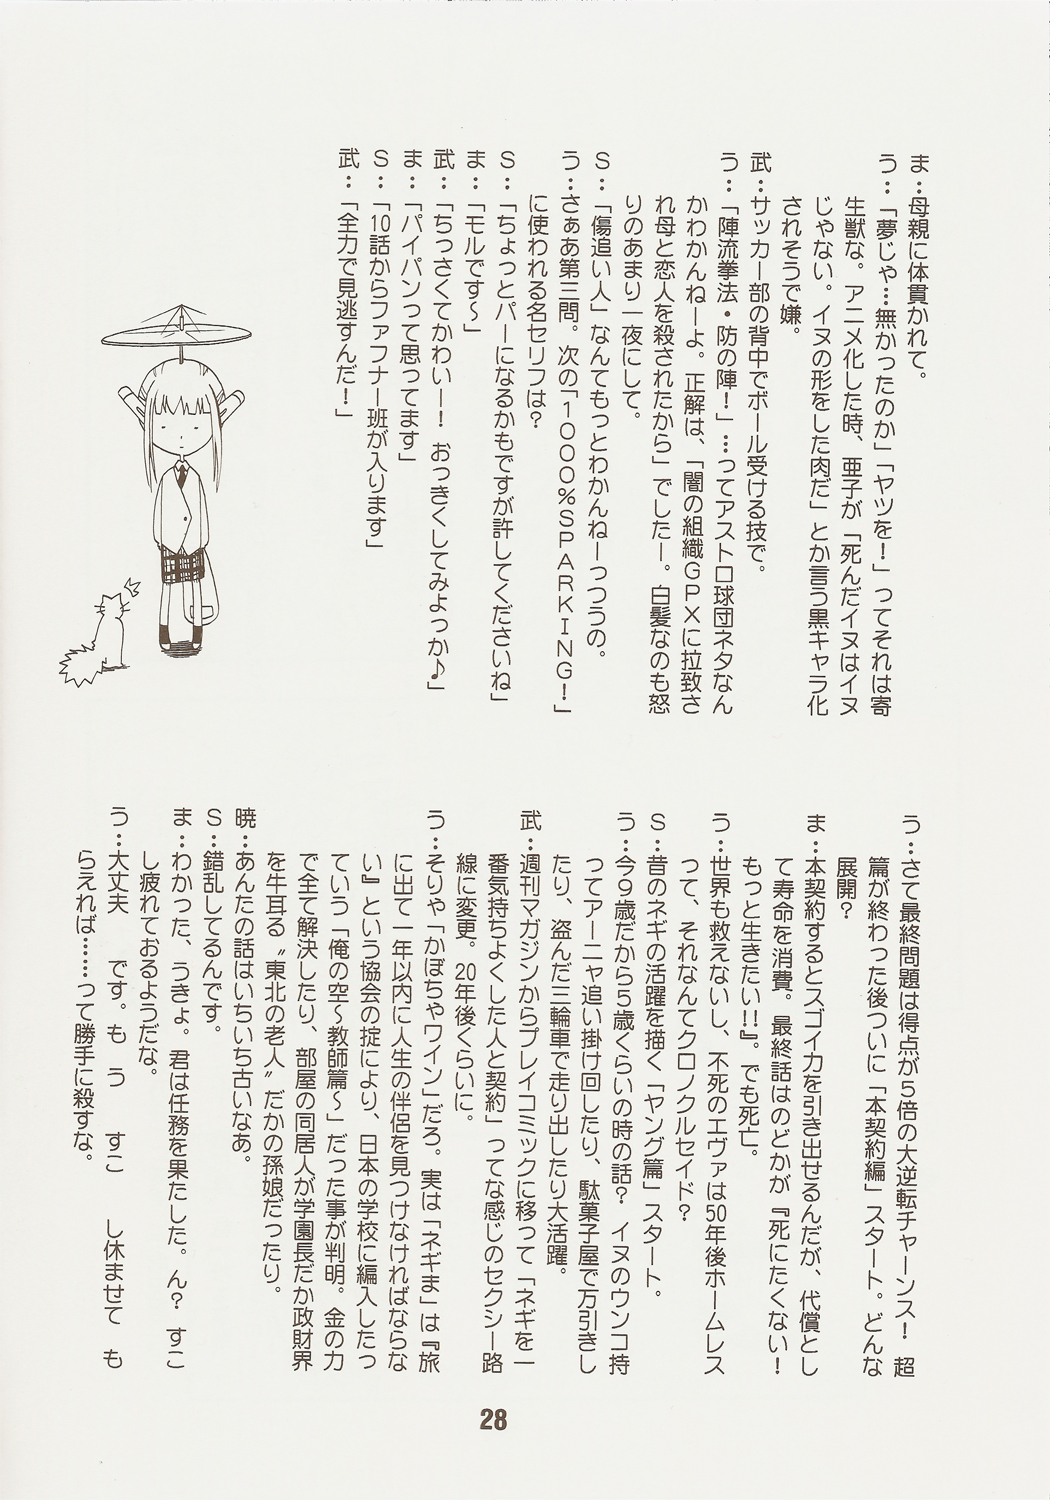 ま：母親に体貫かれて。
う：「夢じゃ…無かったのか」「ヤツを！」ってそれは寄
生獣な。アニメ化した時、亜子が「死んだイヌはイヌ
じゃない。イヌの形をした肉だ」とか言う黒キャラ化
されそうで嫌。
武：サッカー部の背中でボール受ける技で。
う：「陣流拳法・防の陣！」…ってアストロ球団ネタなん
かわかんねーよ。正解は、「闇の組織GPXに拉致さ
れ母と恋人を殺されたから」でしたー。白髪なのも怒
りのあまり一夜にして。
S：「傷追い人」なんてもっとわかんねーっつうの。
う：さぁあ第三問。次の「1000％SPARKING！」
に使われる名セリフは？
S：「ちょっとパーになるかもですが許してくださいね」
ま：「モルです～」
武：「ちっさくてかわいー！おっきくしてみよっか♪」
ま：「パイパンって思ってます」
S：「10話からファフナー班が入ります」
武：「全力で見逃すんだ！」
う：さて最終問題は得点が5倍の大逆転チャーンス！超
篇が終わった後ついに「本契約編」スタート。どんな
展開？
ま：本契約するとスゴイ力を引き出せるんだが、代償とし
て寿命を消費。最終話はのどかが『死にたくない！
もっと生きたい!!』。でも死亡。
う：世界も救えないし、不死のエヴァは50年後ホームレス
って、それなんてクロノクルセイド？
S：昔のネギの活躍を描く「ヤング篇」スタート。
う：今9歳だから5歳くらいの時の話？イヌのウンコ持
ってアーニャ追い掛け回したり、駄菓子屋で万引きし
たり、盗んだ三輪車で走り出したり大活躍。
武：週刊マガジンからプレイコミックに移って「ネギを一
番気持ちよくした人と契約」ってな感じのセクシー路
線に変更。20年後くらいに。
う：そりゃ「かぼちゃワイン」だろ。実は「ネギま」は『旅
に出て一年以内に人生の伴侶を見つけなければならな
い』という協会の掟により、日本の学校に編入したっ
ていう「俺の空～教師篇～」だった事が判明。金の力
で全て解決したり、部屋の同居人が学園長だか政財界
を牛耳る〝東北の老人〟だかの孫娘だったり。
暁：あんたの話はいちいち古いなあ。
S：錯乱してるんです。
ま：わかった、うきょ。君は任務を果たした。ん？すこ
し疲れておるようだな。
う：大丈夫　です。も　う　すこ　し休ませて　も
らえれば……って勝手に殺すな。
28